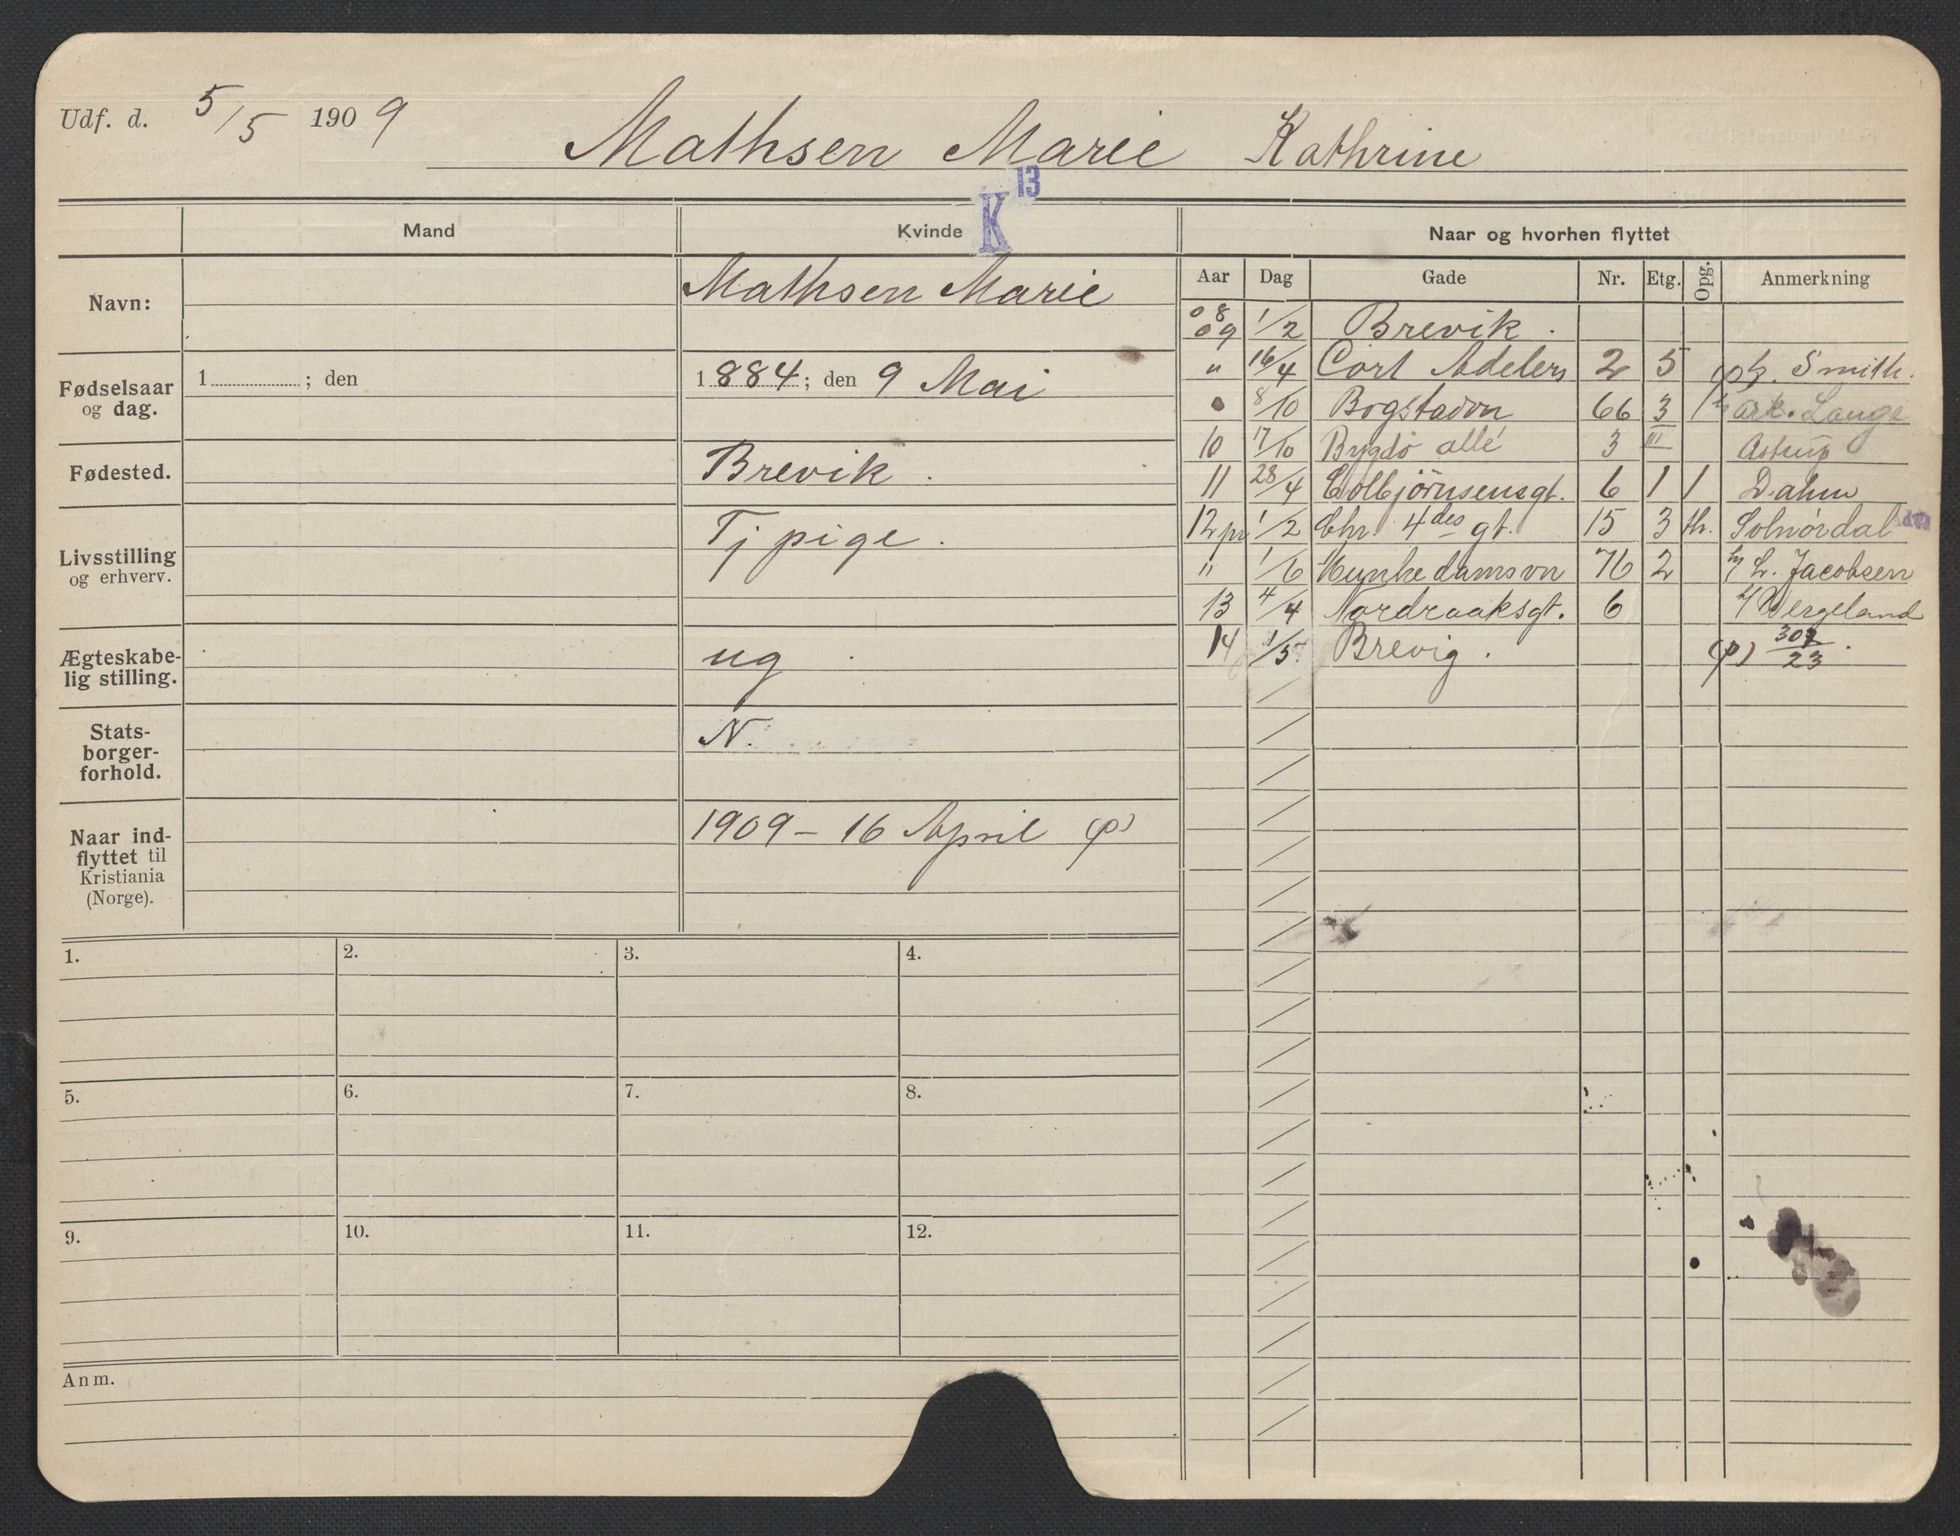 Udf. d. 5/5 1909
Mathsen Marie Kathrine
K 13
Mand
Kvinde
Naar og hvorhen flyttet
Navn:
Mathsen Marie
Fødselsaar og dag.
1 ; den
1884; den 9 Mai
Fødested.
Brevik.
Livsstilling og erhverv.
Tj pige.
Ægteskabe-
lig stilling.
ug
Stats-
borger-
forhold.
N.
Naar ind-
flyttet til
Kristiania
(Norge).
1909 – 16 April (p)
Aar Dag Gade Nr. Etg. Opg. Anmerkning
08 09 1/2 Brevik.
" 16/4 Cort Adelers 2 5 Smith.
8/10 Bogstadvn 66 3 1 ark. Lange
10 17/10 Bygdø allé 3 III Astrup
11 28/4 Colbjørnsensgt. 6 1 1 Dahm
12 pr 1/2 Chr 4des gt. 15 3 th. Solnørdal
" 1/6 Munkedamsvn 76 2 L. Jacobsen
13 4/4 Nordraaksgt. 6 Wergeland
14 1/5 Brevig. (p) 307/23.
1. 2. 3. 4.
5. 6. 7. 8.
9. 10. 11. 12.
Anm.